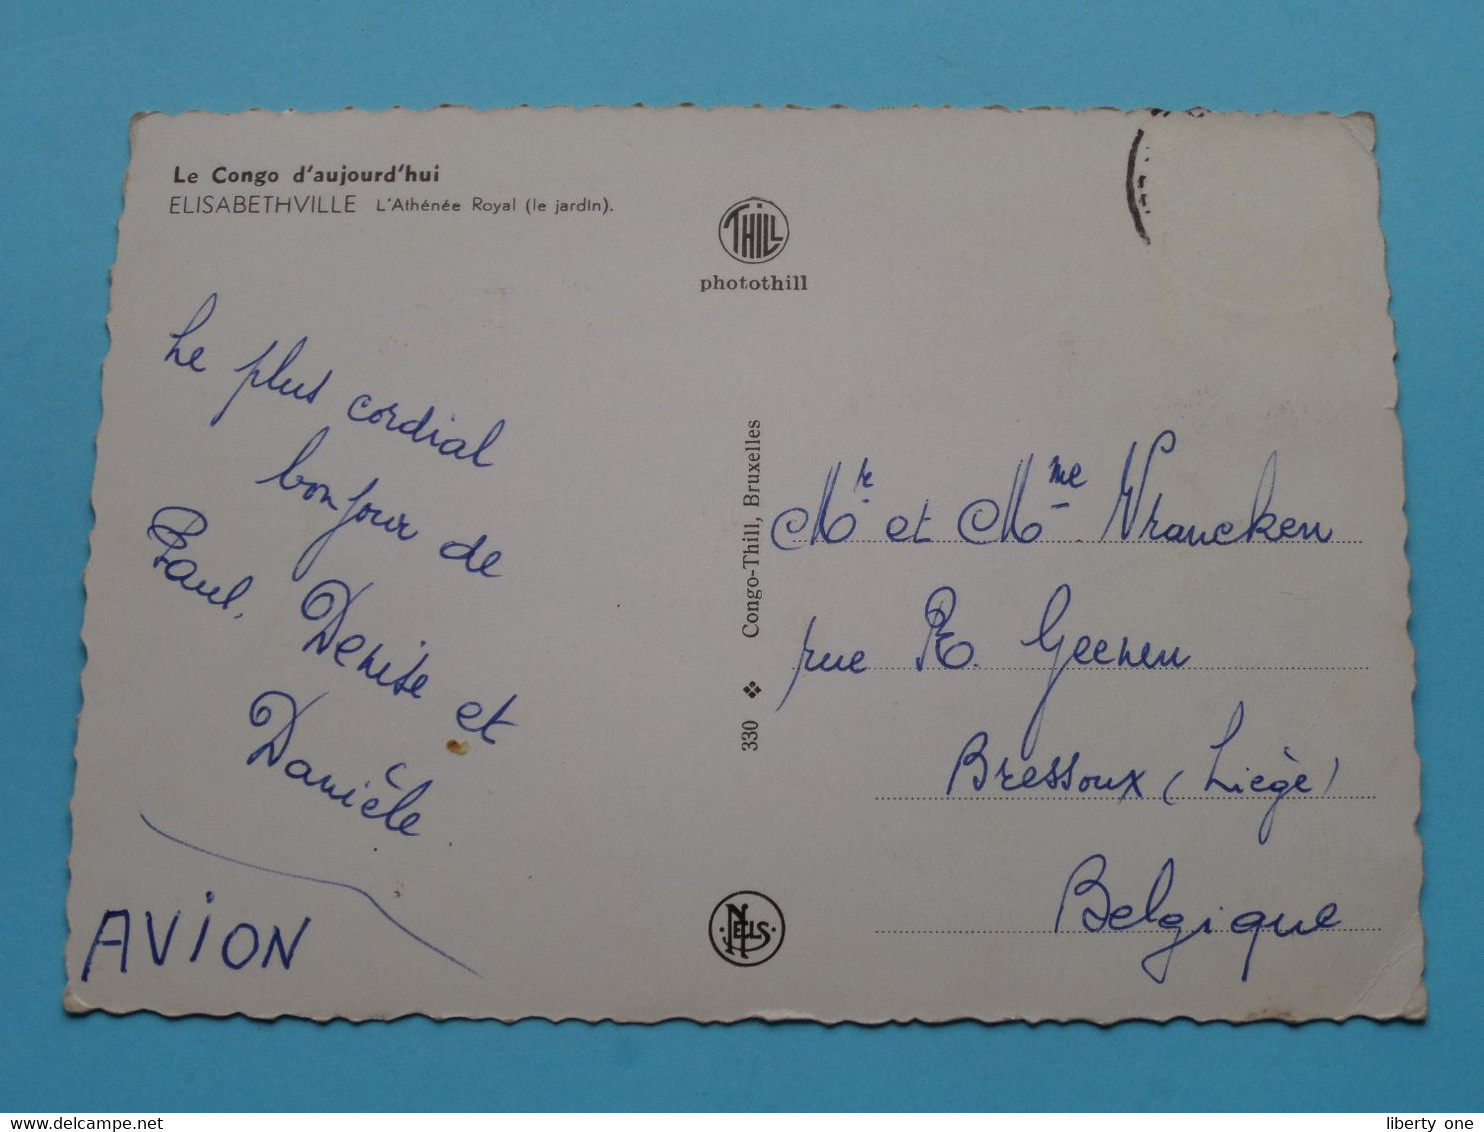 Le Congo d'aujourd'hui
ELISABETHVILLE L'Athénée Royal (le jardin).
THILL
photothill
Le plus cordial
bonjour de
Paul, Denise et
Danièle
AVION
330 ❖ Congo-Thill, Bruxelles
NELS
Mr et Mme Vrancken
rue R. Geenen
Bressoux (Liège)
Belgique
www.delcampe.net
liberty one